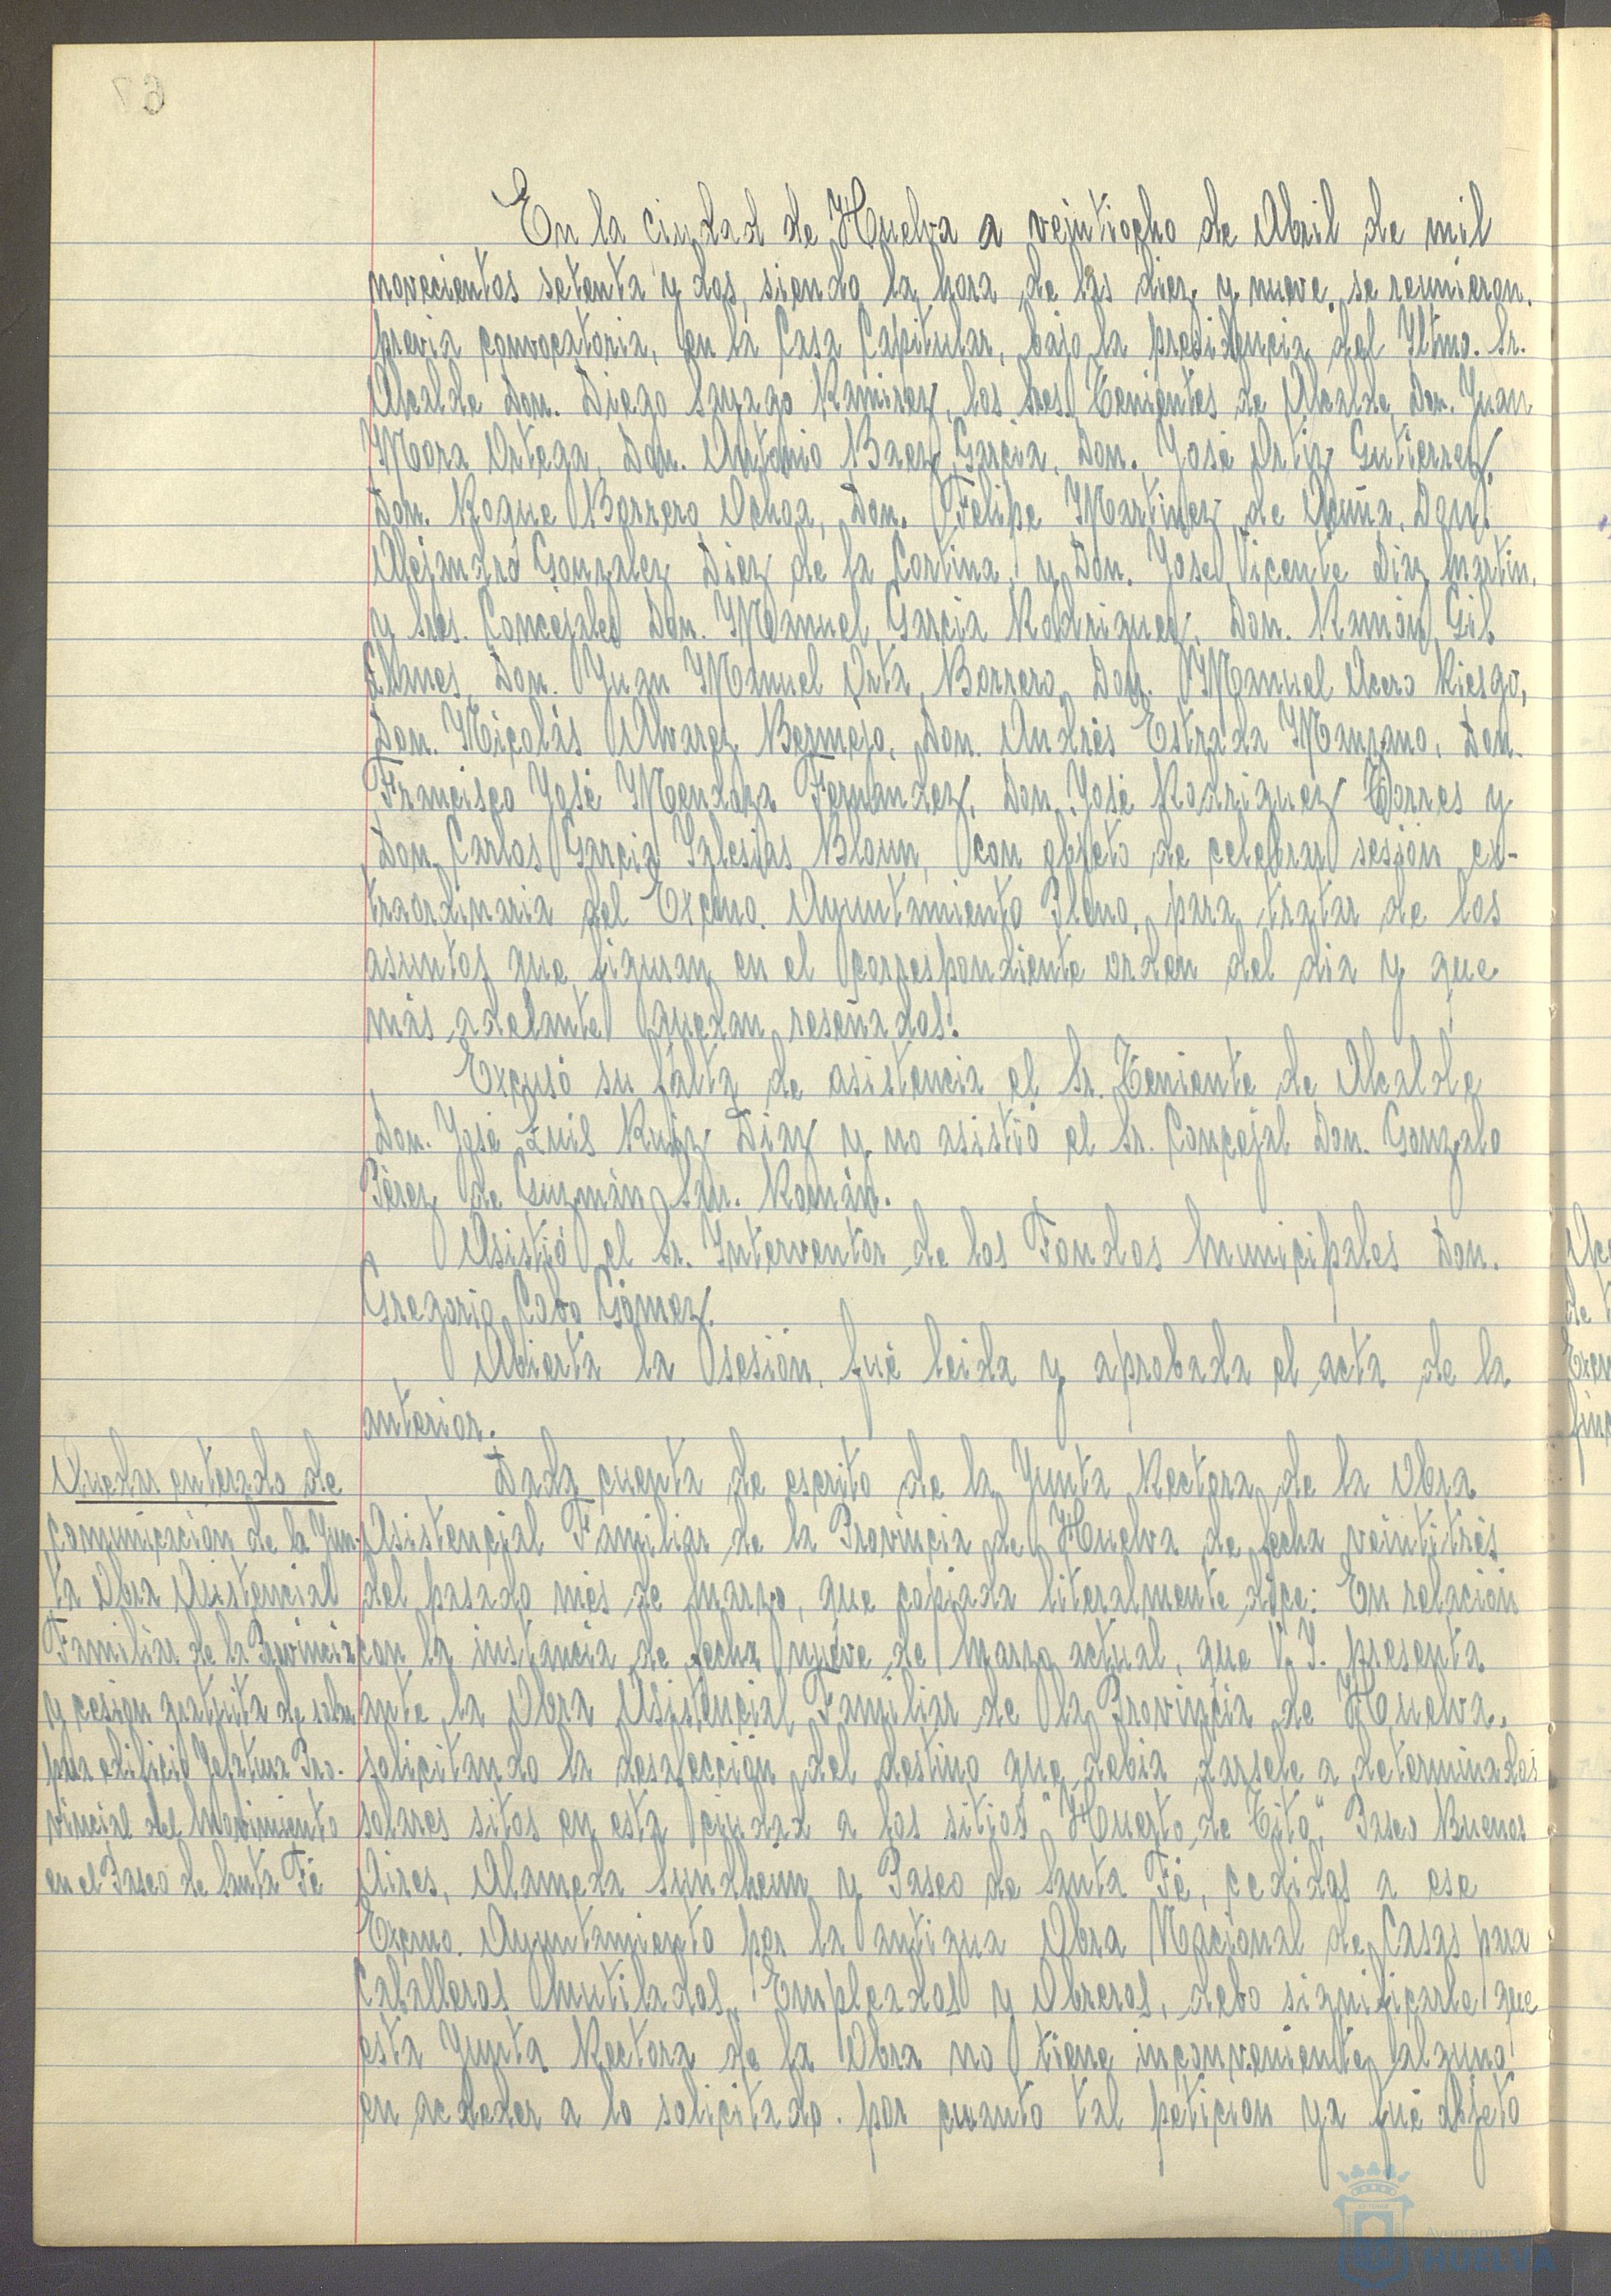 En la ciudad de Huelva a veintiocho de Abril de mil
novecientos setenta y dos, siendo la hora de las diez y nueve, se reunieron,
previa convocatoria, en la Casa Capitular, bajo la presidencia del Iltmo. Sr.
Alcalde Don. Diego Sayago Ramirez, los Sres. Tenientes de Alcalde, Don. Juan
Mora Ortega, Don. Antonio Baez Garcia, Don. José Ortiz Gutierrez,
Don. Roque Borrero Ochoa, Don. Felipe Martinez de Acuña, Don.
Alejandro Gonzalez Diez de la Cortina, y Don. Jose Vicente Diaz Martin,
y Sres. Concejales Don. Manuel Garcia Rodriguez, Don. Ramón Gil
Don. Juan Manuel Orta Borrero, Don. Manuel Acero Riesgo,
Don. Nicolás Alvarez Bermejo, Don. Andrés Estrada Manzano, Don.
Francisco José Mendoza Fernandez, Don. José Rodriguez Torres y
Don. Carlos Garcia Iglesias Bloun, con objeto de celebrar sesión ex-
traordinaria del Excmo. Ayuntamiento Pleno, para tratar de los
asuntos que figuran en el correspondiente orden del dia y que
más adelante quedan reseñados.
Excusó su falta de asistencia el Sr. Teniente de Alcalde
Don. José Luis Ruiz Diaz y no asistió el Sr. Concejal Don. Gonzalo
Pérez de Guzmán San. Román.
Asistió el Sr. Interventor de los Fondos Municipales Don.
Gregorio Cabo Gómez.
Abierta la sesión, fué leida y aprobada el acta de la
anterior.
Quedar enterado de
comunicación de la Jun-
ta Obra Asistencial
Familiar de la Provincia
y cesion gratuita de solar
para edificio Jefatura Pro-
vincial del Movimiento
en el Paseo de Santa Fé
Dada cuenta de escrito de la Junta Rectora de la Obra
Asistencial Familiar de la Provincia de Huelva de fecha veintitrés
del pasado més de Marzo, que copiada literalmente dice: En relación
con la instancia de fecha nueve de Marzo actual, que V. I. presenta
ante la Obra Asistencial Familiar de la Provincia de Huelva,
solicitando la desafección del destino que debia darsele a determinados
solares sitos en esta ciudad a los sitios "Huerto de Tito," Paseo Buenos
Aires, Alameda Sundheim y Paseo de Santa Fé, cedidos a ese
Excmo. Ayuntamiento por la antigua Obra Nacional de Casas para
Caballeros Mutilados, Empleados y Obreros, debo significarle que
esta Junta Rectora de la Obra no tiene inconveniente alguno
en acceder a lo solicitado. por cuanto tal peticion ya fué objeto
Ayuntamiento
HUELVA